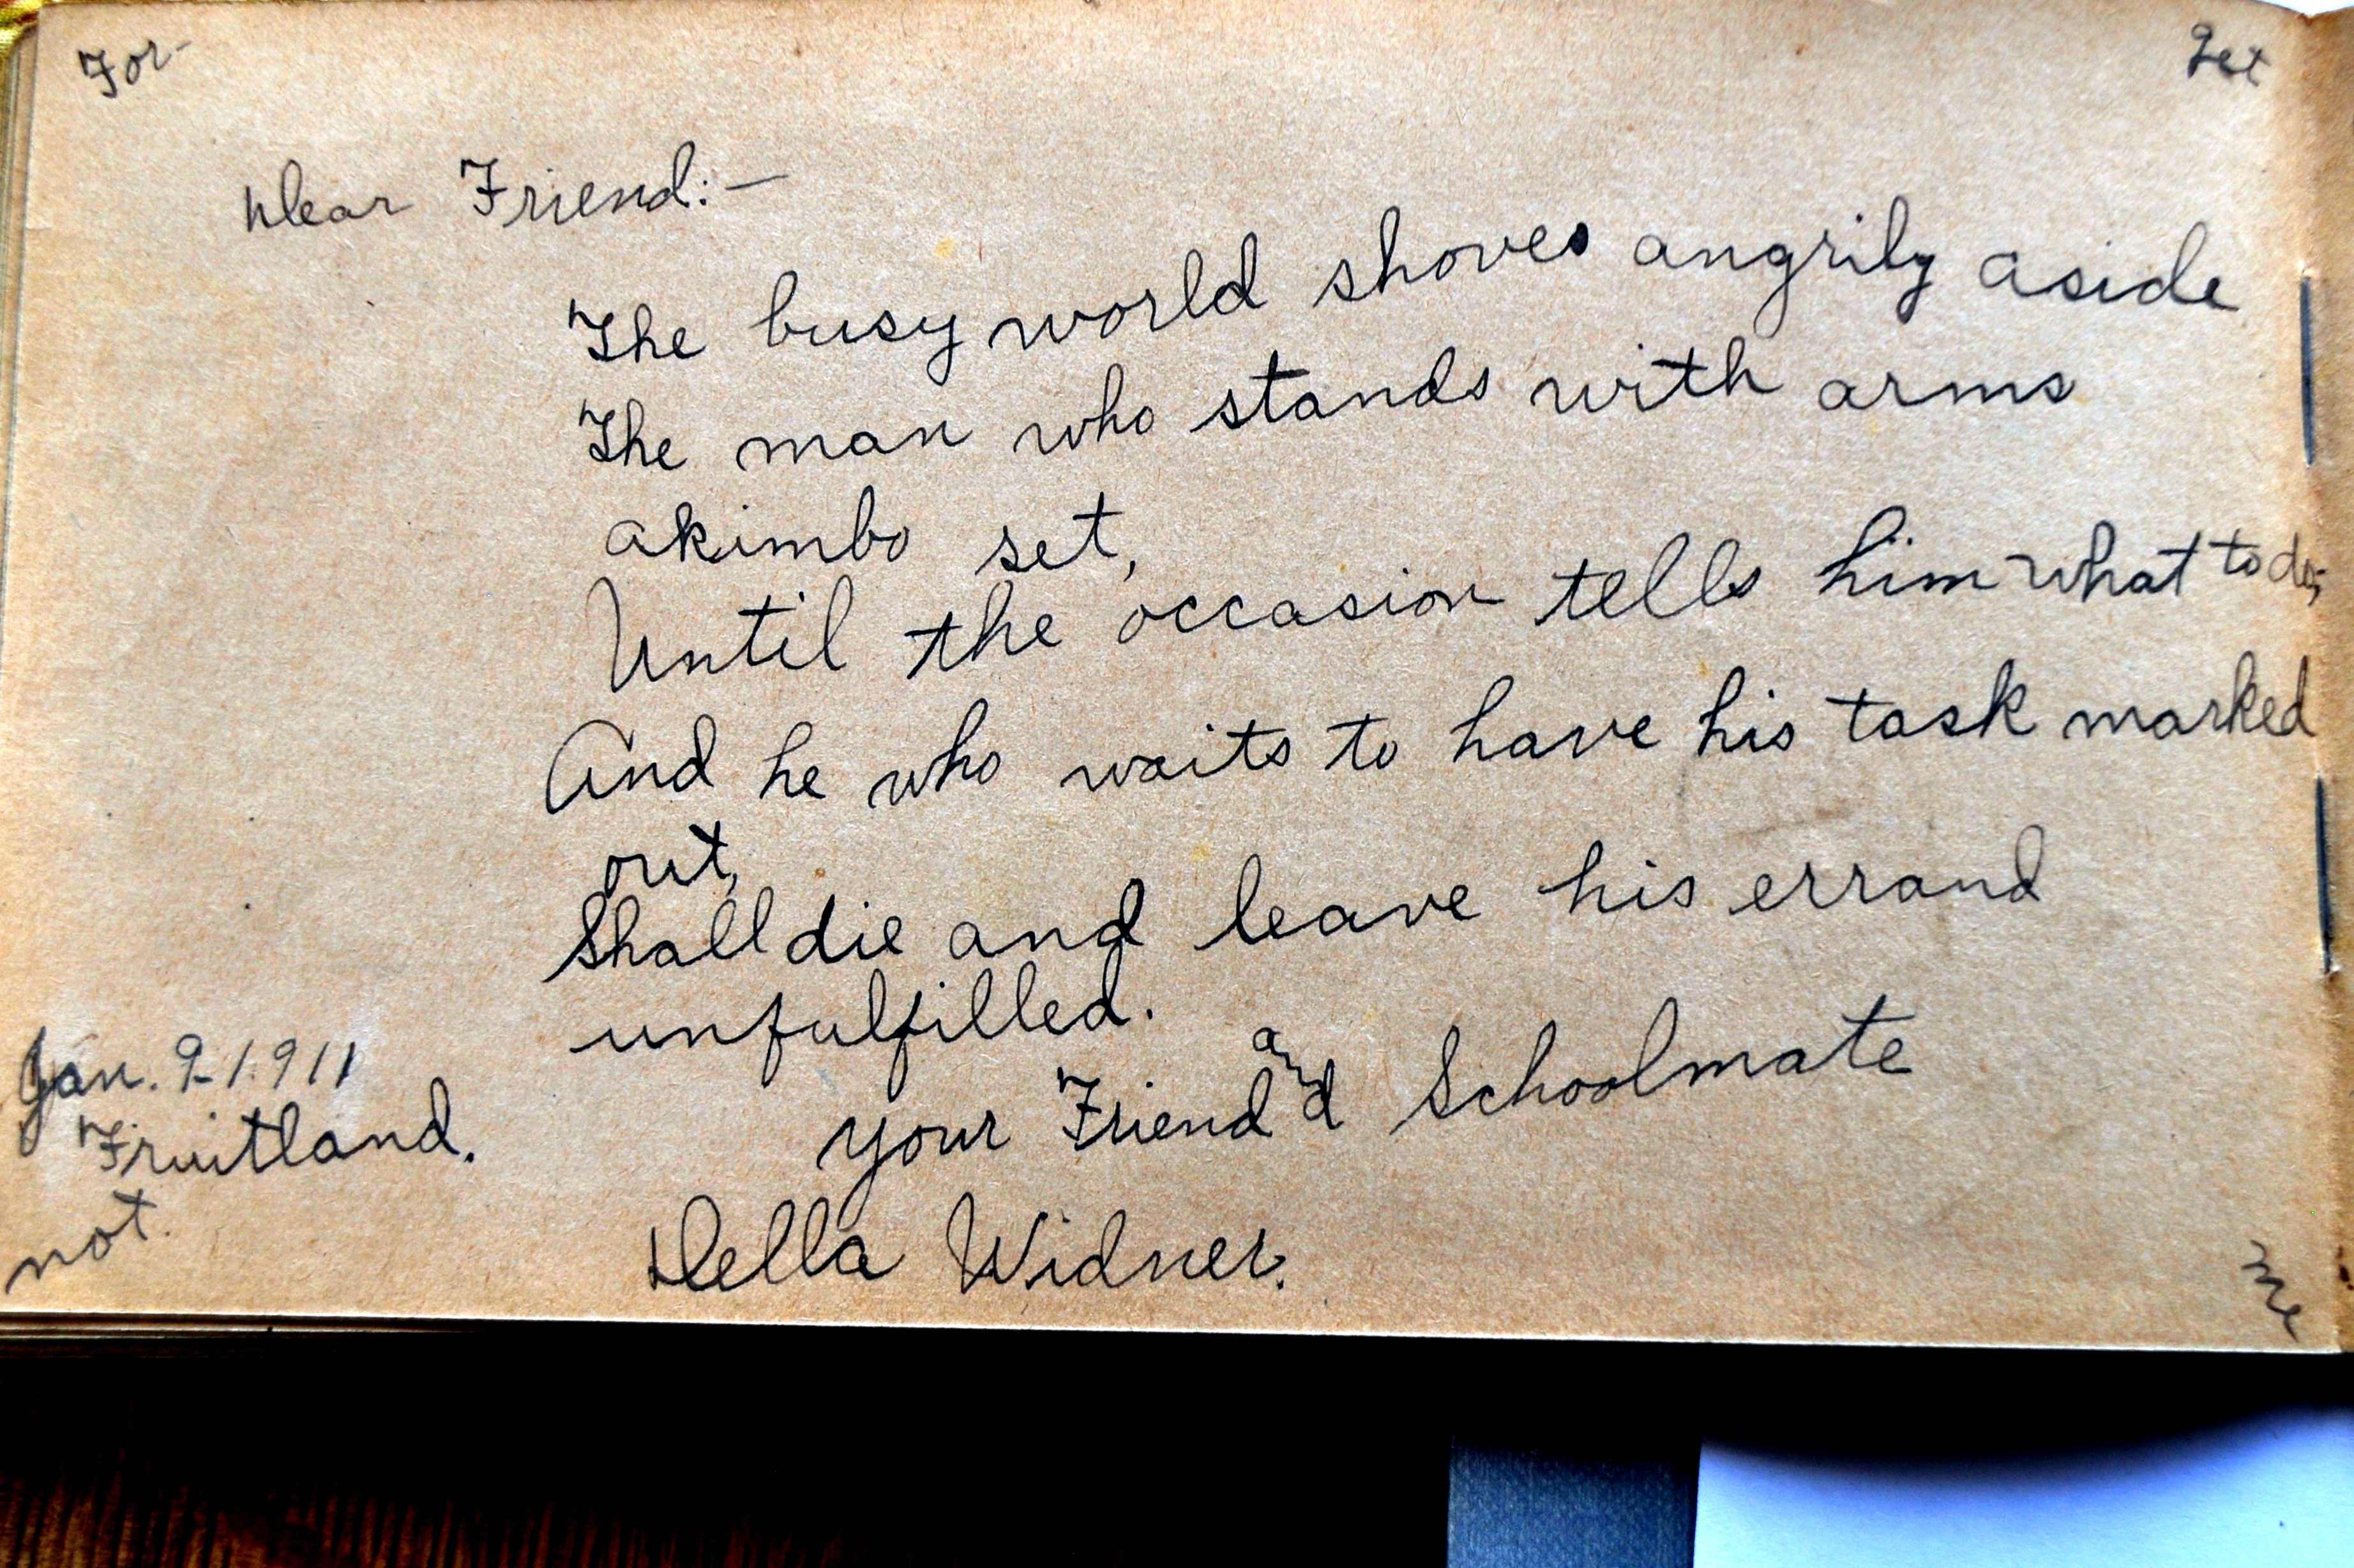 For- Get
Dear Friend:—
The busy world shoves angrily aside
The man who stands with arms
akimbo set,
Until the occasion tells him what to do;
And he who waits to have his task marked
out,
Shall die and leave his errand
unfulfilled.
Your Friend and Schoolmate
Della Widner.
Jan. 9-1911
Fruitland.
not. me